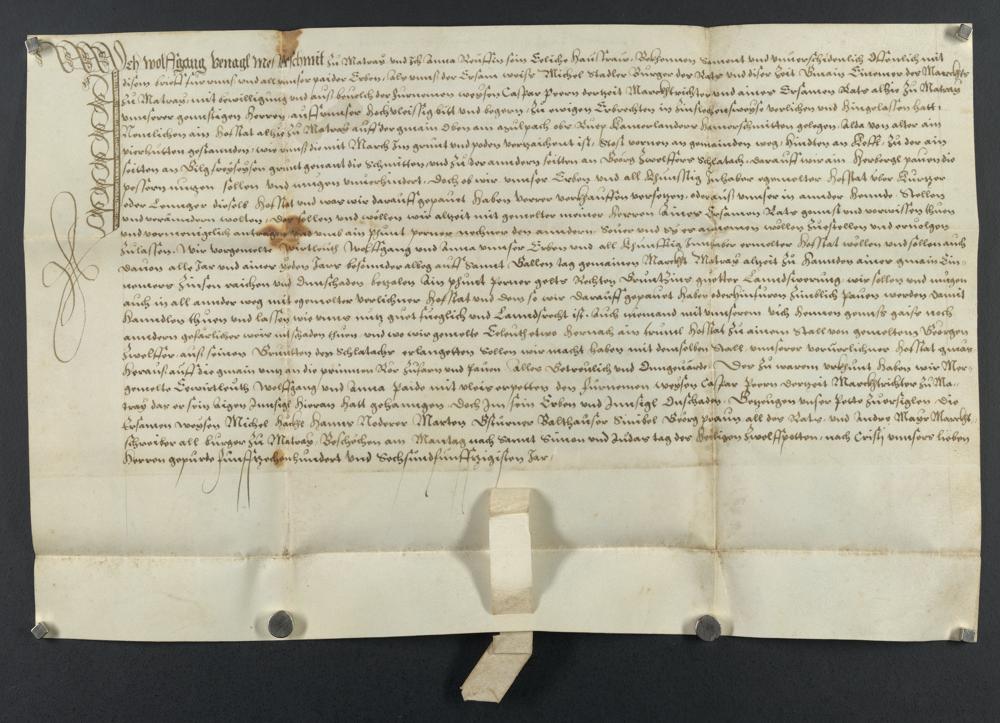 Ich Wolffgang Venagl mesrschmit zu Matray vnd Ich Anna Reuslin sein Eeliche Hausfraw, Bekhennen Sament vnd vnuerschidenlich Offenlich mit
disem brieff für vnns vnd all vnnser paider Erben, Als vnns der Ersam weiss Michel Stadler Burger des Rats vnd diser Zeit Gmain Einemer des Marckhts
zu Matray, mit bewilligung vnd auss beuelch des Fürnemen weysen Caspar Peern derzeit Marckhtrichter vnd ainer Ersamen Rats alhie zu Matray
vnnserer gonnstigen Herren, auff vnnser Hochuleissig bitt vnd begern, zu ewigen Erbrechten in verlichen vnd Hingelassen hatt,
Nemlichen ain Hofstat alhie zu Matray auff der gmain Oben am obr Ruep gelegen, Alda von alter ain
gestannden, wie vnns die mit March zu grunt vnd poden verzaichent ist, Stost vornen an gemainden weg, Hinden an Kofl, zu der ain
seitten an grunt genant die Schmitten, vnd zu der anndern seitten an Georg Zwelffers Schlatach, darauff wir ain Herberg pauen die
pessern mügen sollen vnd mügen vnuerhindert, Doch ob wir vnnser Erben vnd all Khunfftig Inhaber egemelter Hofstat vber kurtzer
oder Lennger dieselb Hofstat vnd was wir darauff gepauet haben verrer verkhauffen versetzen, oder auss vnnser in annder Hennde Stellen
vnd verenndern wolten, das sollen vnd wellen wir alzeit mit gemelter meiner Herren ainer Ersamen Rats gunnst vnd vorwissen thuen
vnd vormenigclich vmb ain phunt perner nechner den anndern, Souer vnd sy es annemen wöllen zuestellen vnd eruolgen
zulassen, Wir vorgemelte Wirtleuth Wolffgang vnd Anna vnnser Erben vnd all Khunfftig Innhaber ermelter Hofstat wöllen vnd sollen auch
dauon alle Jar vnd ainer yeden Jars besonnder albeg auff Sannt Gallen tag gemainen Marckht Matray alzeit zu Hannden ainer gmain Ein-
nemers zinsen raichen vnd Onnschaden bezalen Ain phunt Perner gelts Rechten Gruntzins guetter Lanndswerung, wir sollen vnd mügen
auch in all annder weg mit egemelter verlichner Hofstat vnd dem so wir darauff gepauet haben oder hinfuran zimblich pauen werden damit
Hanndlen thuen vnd lassen wie vnns nutz guet füeglich vnd Lanndsrecht ist, Auch niemand mit vnnserem vich Hennen gennss gaiss noch
anndern geferlicher weis nit schaden thuen, vnd wo wir gemelte Eeleuth etwo Hernach ain Hofstat zu ainem Stall von gemeltem Georgen
Zwelffer auss seinem Grundten den Schlatachs erlangetten Sollen wir macht haben mit demselben Stall vnnserer verlichner Hofstat
Heraus auff die gmain vntz an die prunnen Ror zufarn vnd pauen, Alles Getreulich vnd Ongeuärde, Des zu waren vrkhunt Haben wir Vor-
gemelte Eewirtleuth Wolffgang vnd Anna Paide mit vleis erpetten den Fürnemen weysen Caspar Peern derzeit Marckhtrichter zu Ma-
tray das er sein Aigen Innsigl Hieran hatt gehanngen, Doch Im sein Erben vnd Innsigl Onschaden, Gezeugen vnser Pette zuersiglen Die
Ersamen weysen Michel Hanns Noderer Marten Balthauser Georg Praun all des Rats, vnd Andre Mayr Marckht-
schreiber all burger zu Matray, Beschehen am Mantag nach Sannt Simon vnd Judas tag der Heiligen Zwelffpotten, nach Cristj vnnsers lieben
Herren gepurde Funffzechenhundert vnd Sechsundfunffzigisten Jar,